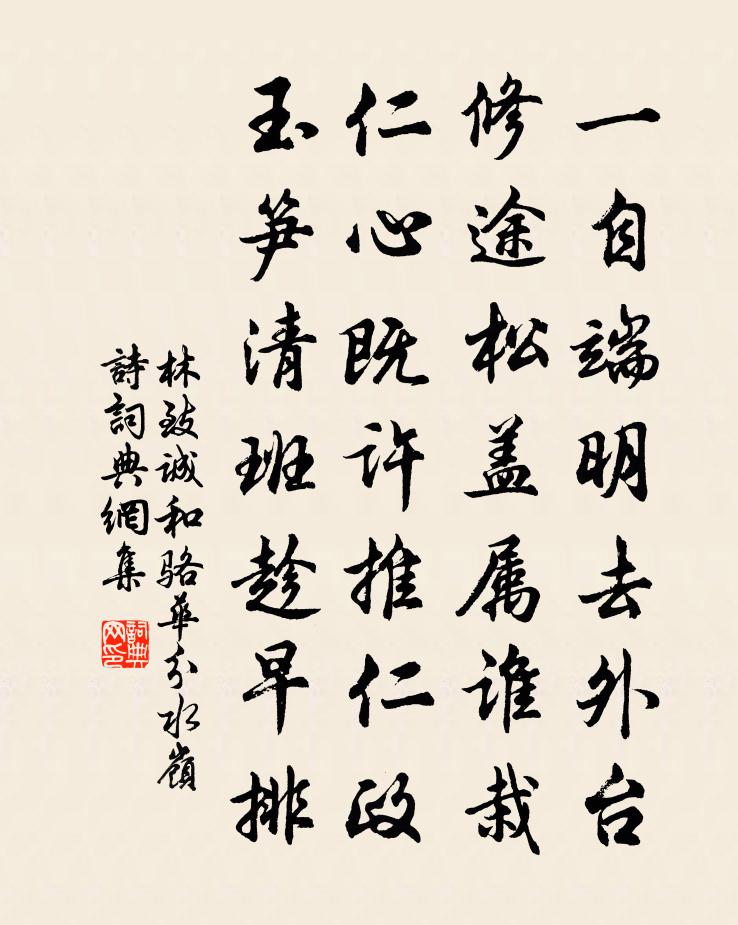 一自端明去外台
修途松盖属谁栽
仁心既许推仁政
玉笋清班趁早排
林致诚和骆华分水嶺
詩詞典網集
詞典网印